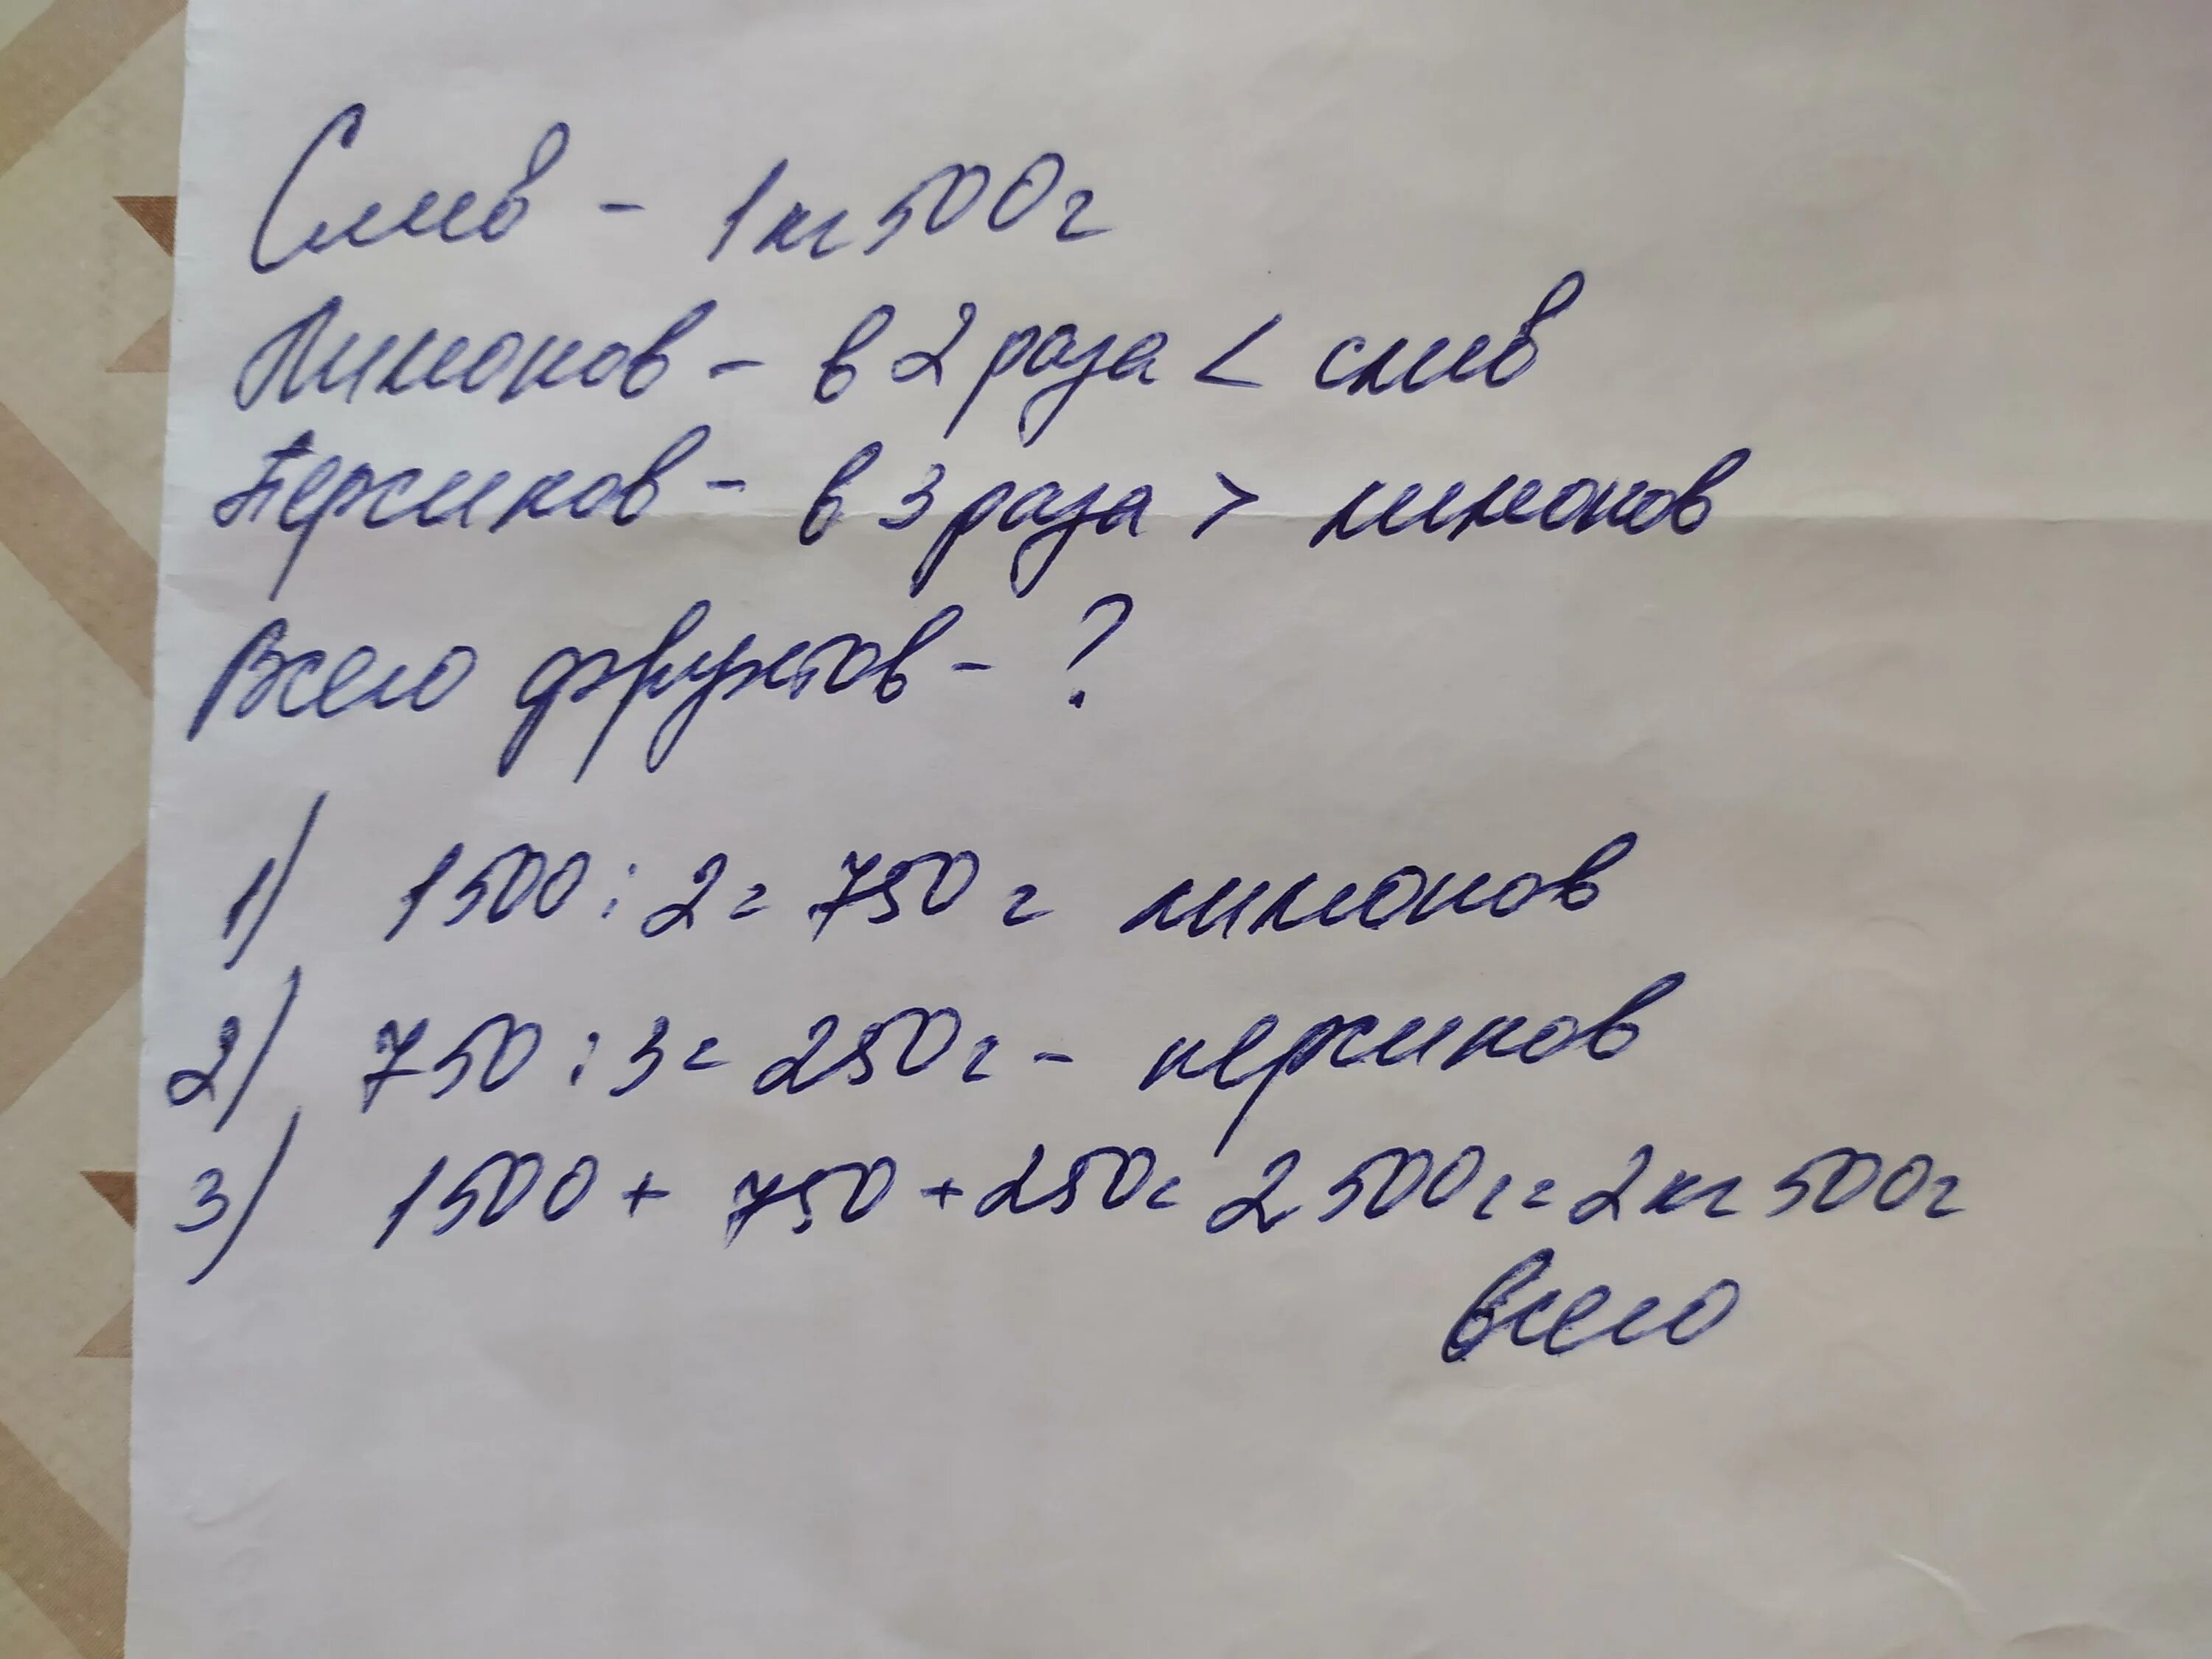 Слив - 1кг 500г
Лимонов - в 2 раза < слив
Персиков - в 3 раза > лимонов
Всего фруктов - ?
1) 1500 : 2 = 750 г лимонов
2) 750 : 3 = 250г - персиков
3) 1500 + 750 + 250 = 2500г = 2кг 500г
всего